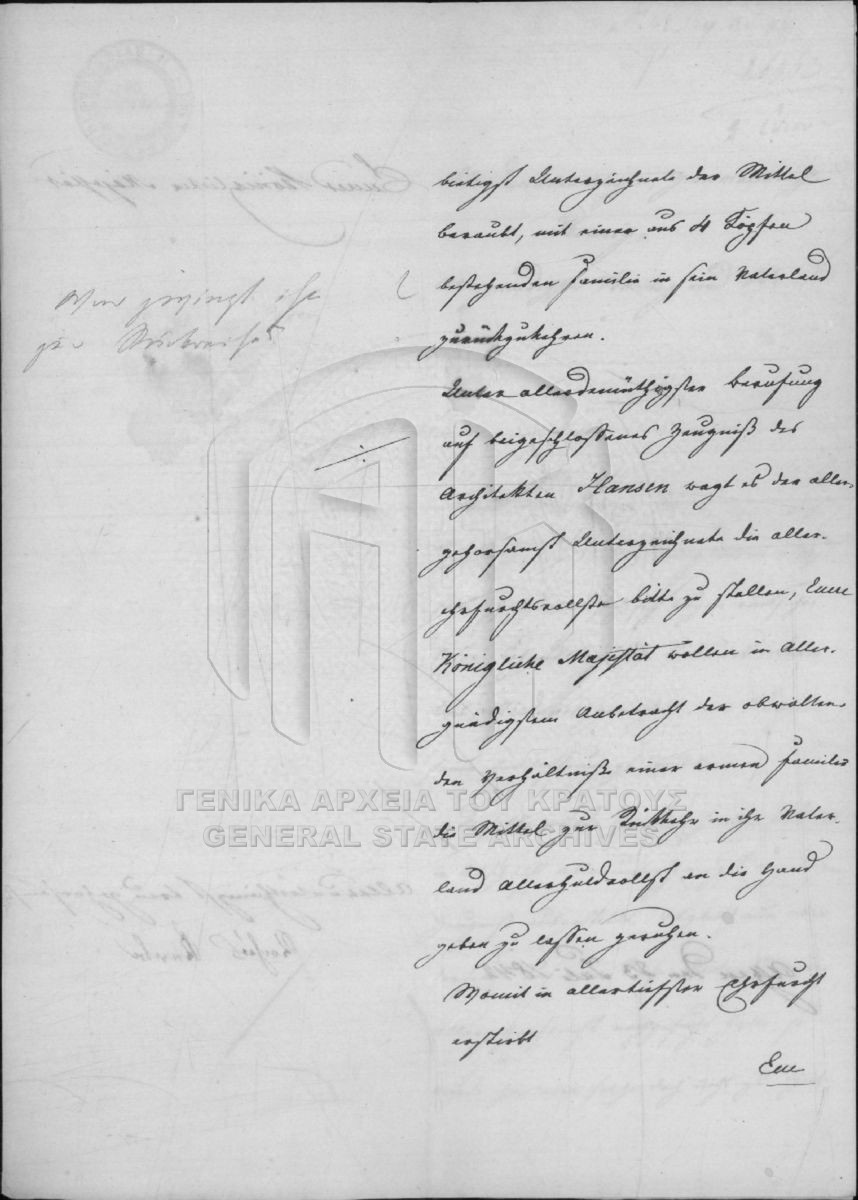 bietigst Unterzeichnete der Mittel
beraubt, mit einer aus 4 Köpfen
bestehenden Familie in sein Vaterland
zurückzukehren.
Unter allerdemüthigster Berufung
auf beigeschlossenes Zeugniß des
Architekten Hansen wagt es der aller-
gehorsamst Unterzeichnete die aller-
ehrfurchtsvollste Bitte zu stellen, Eure
Königliche Majestät wollen in Aller-
gnädigstem Anbetracht der obwalten-
den Verhältniße einer armen Familie
die Mittel zur Rückkehr in ihr Vater-
land Allerhuldvollst an die Hand
geben zu lassen geruhen.
Womit in allertiefster Ehrfurcht
erstirbt
Eure
ΓΕΝΙΚΑ ΑΡΧΕΙΑ ΤΟΥ ΚΡΑΤΟΥΣ
GENERAL STATE ARCHIVES